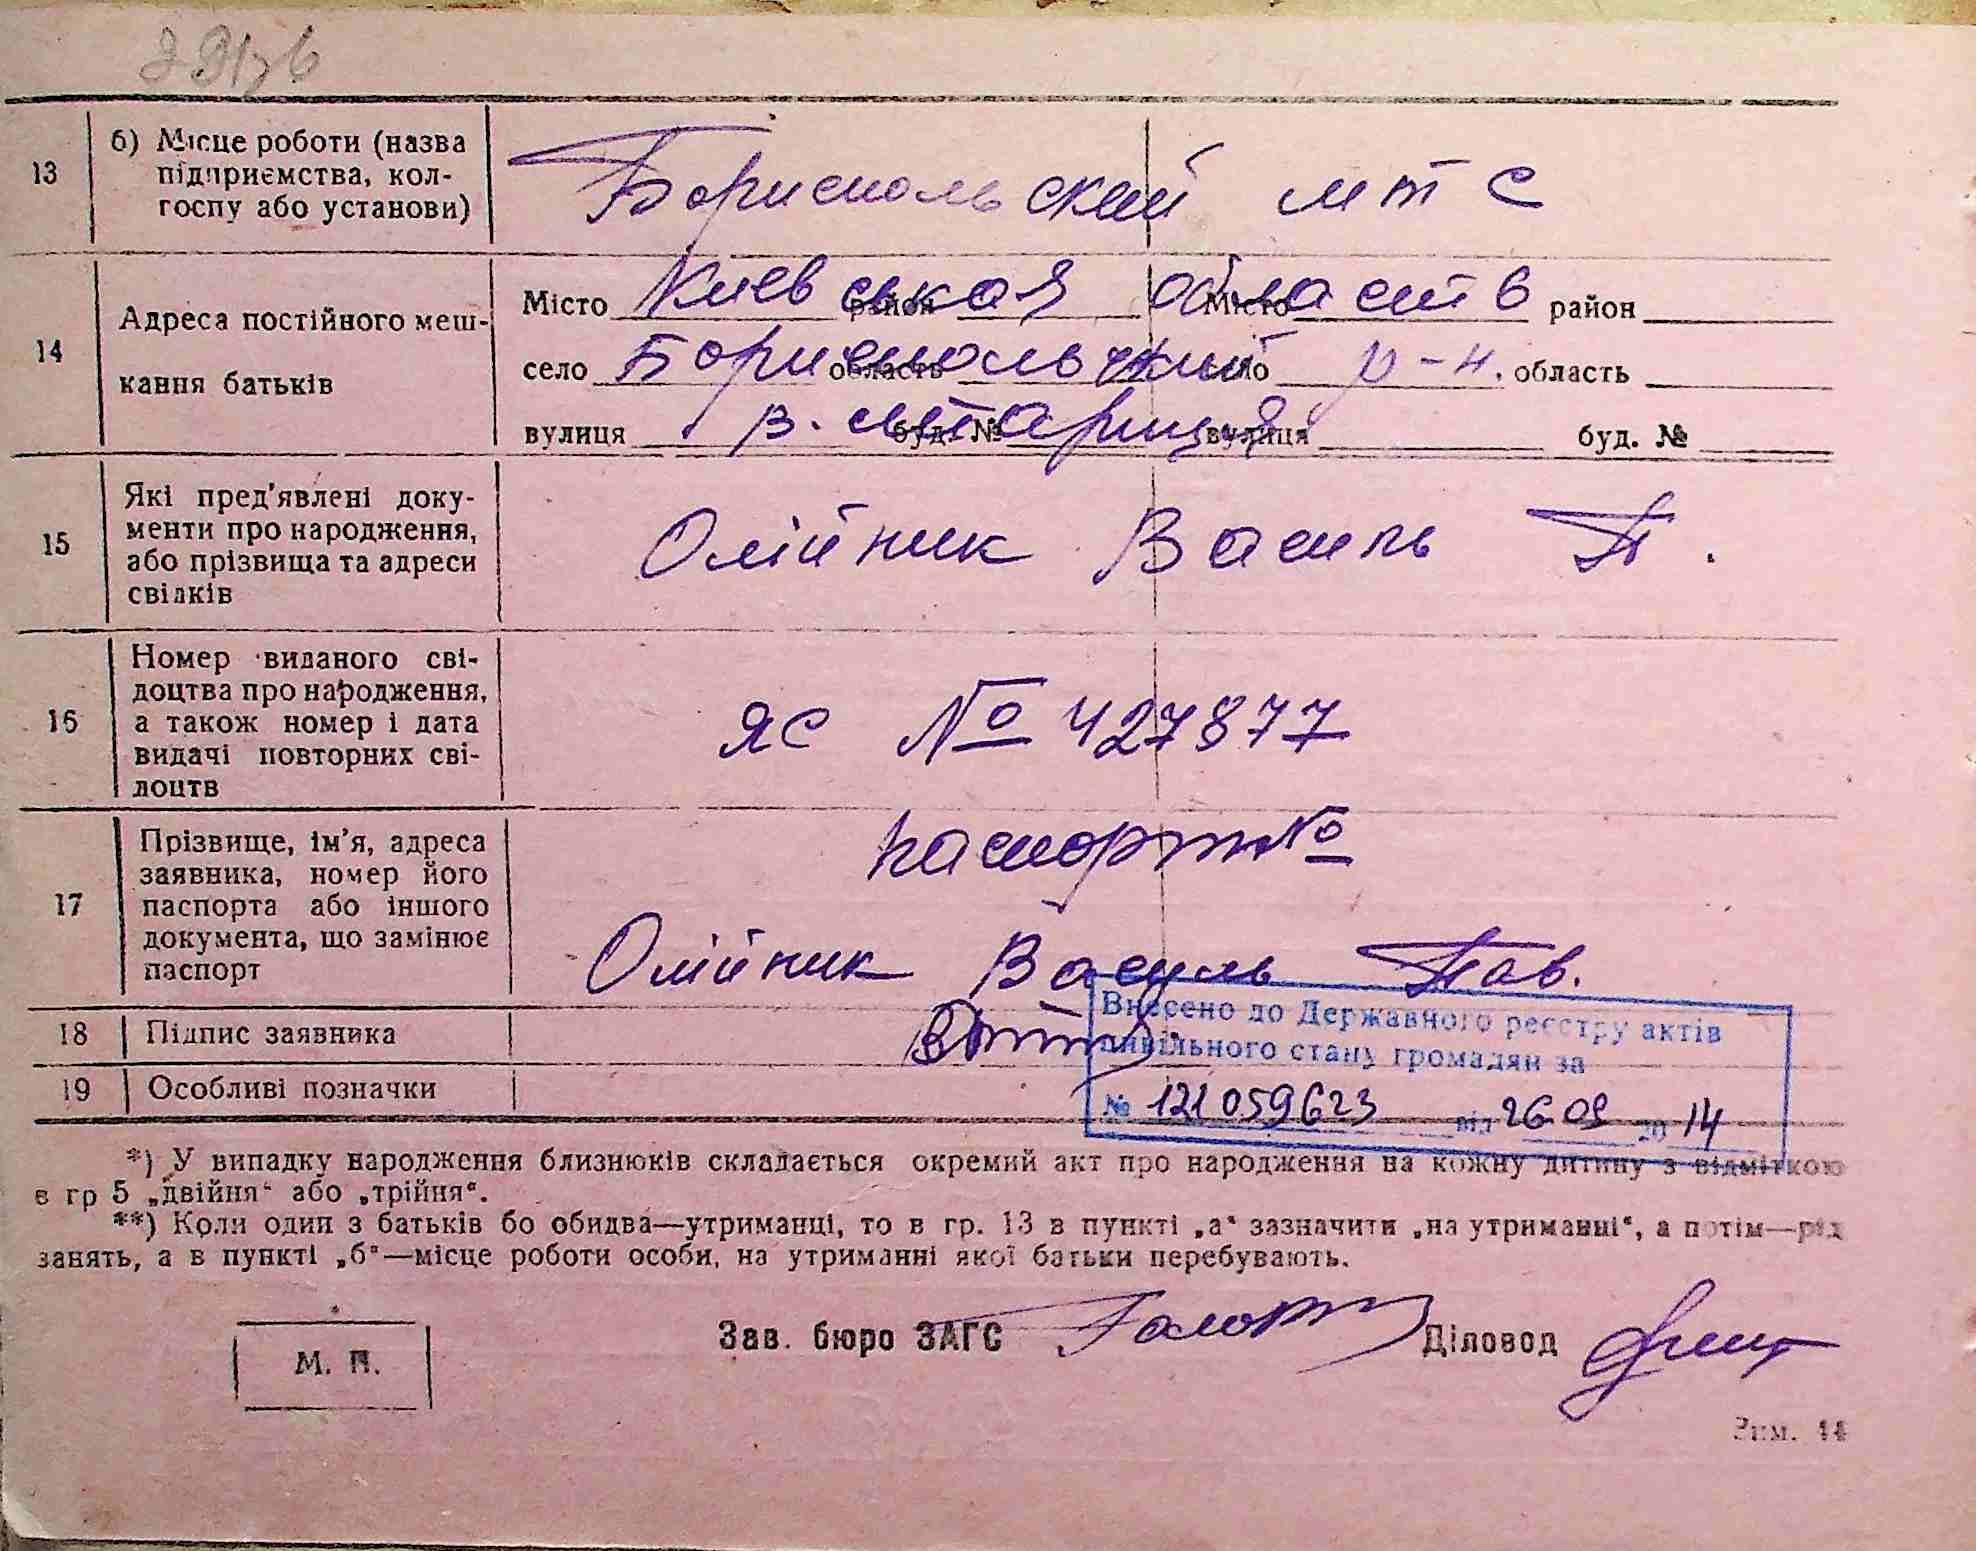 13
б) Місце роботи (назва
підприємства, кол-
госпу або установи)
Бориспольский мтс
14
Адреса постійного меш-
кання батьків
Місто район Місто район
Киевськая область
село область село область
Бориспольский р-н.
вулиця буд. № вулиця буд. №
в. старица
15
Які пред'явлені доку-
менти про народження,
або прізвища та адреси
свідків
Олійник Василь П.
16
Номер виданого сві-
доцтва про народження,
а також номер і дата
видачі повторних сві-
доцтв
ЯС № 427877
17
Прізвище, ім'я, адреса
заявника, номер його
паспорта або іншого
документа, що замінює
паспорт
паспорт №
Олійник Василь Пав.
18
Підпис заявника
19
Особливі позначки
Внесено до Державного реєстру актів
цивільного стану громадян за
№ 121059623 від 26 09 2014
*) У випадку народження близнюків складається окремий акт про народження на кожну дитину з відміткою
в гр 5 „двійня“ або „трійня“.
**) Коли один з батьків бо обидва—утриманці, то в гр. 13 в пункті „а“ зазначити „на утриманні“, а потім—рід
занять, а в пункті „б“—місце роботи особи, на утриманні якої батьки перебувають.
М. П.
Зав. бюро ЗАГС
Діловод
Зим. 44